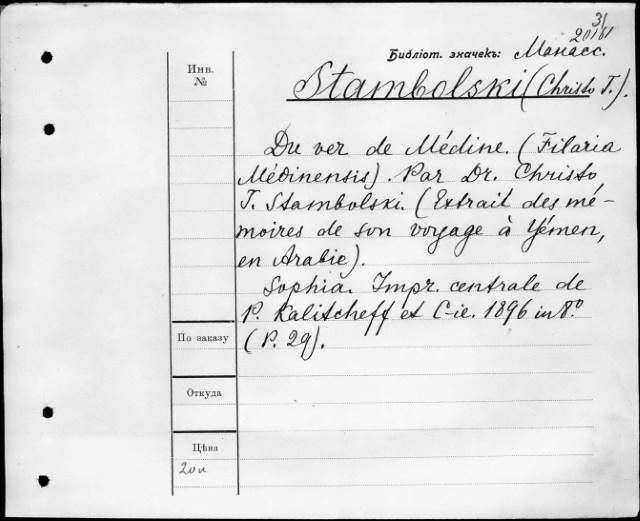 3/
20181
Библіот. значекъ: Манасс.
Инв.
№
Stambolski (Christo T.).
Du ver de Médine. (Filaria
Médinensis). Par Dr. Christo
T. Stambolski. (Extrait des mé-
moires de son voyage à Yémen,
en Arabie).
Sophia. Impr. centrale de
P. Kalitcheff et C-ie. 1896 in 8.º
(P. 29).
По заказу
Откуда
Цѣна